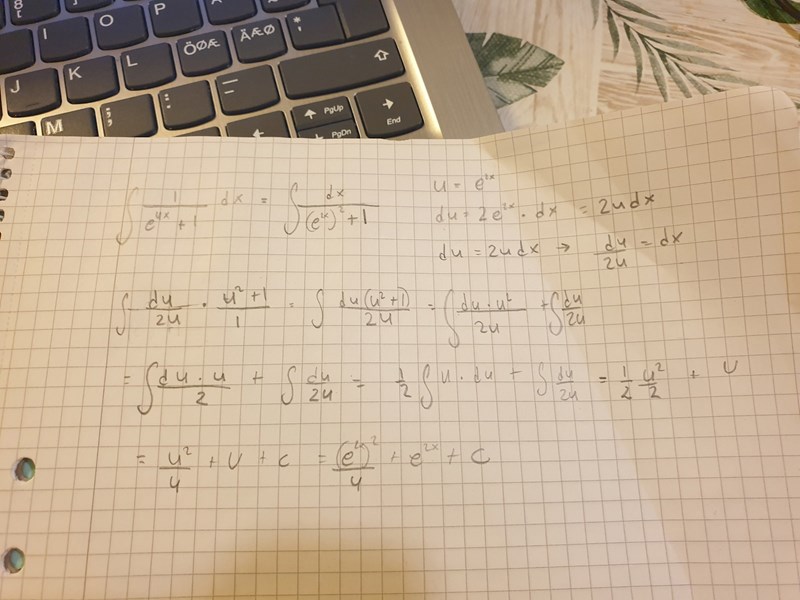 8 [
I O P ÖØÆ ÄÆØ * '
J K L
M ; , : . _ - PgUp End
PgDn
∫ 1/(e^{4x} + 1) dx = ∫ dx/((e^{2x})^2 + 1)
u = e^{2x}
du = 2e^{2x} · dx = 2u dx
du = 2u dx → du/2u = dx
∫ du/2u · (u^2 + 1)/1 = ∫ du(u^2+1)/2u = ∫ du · u^2/2u + ∫ du/2u
= ∫ du · u/2 + ∫ du/2u = 1/2 ∫ u · du + ∫ du/2u = 1/2 u^2/2 + U
= u^2/4 + U + C = (e^{2x})^2/4 + e^{2x} + C